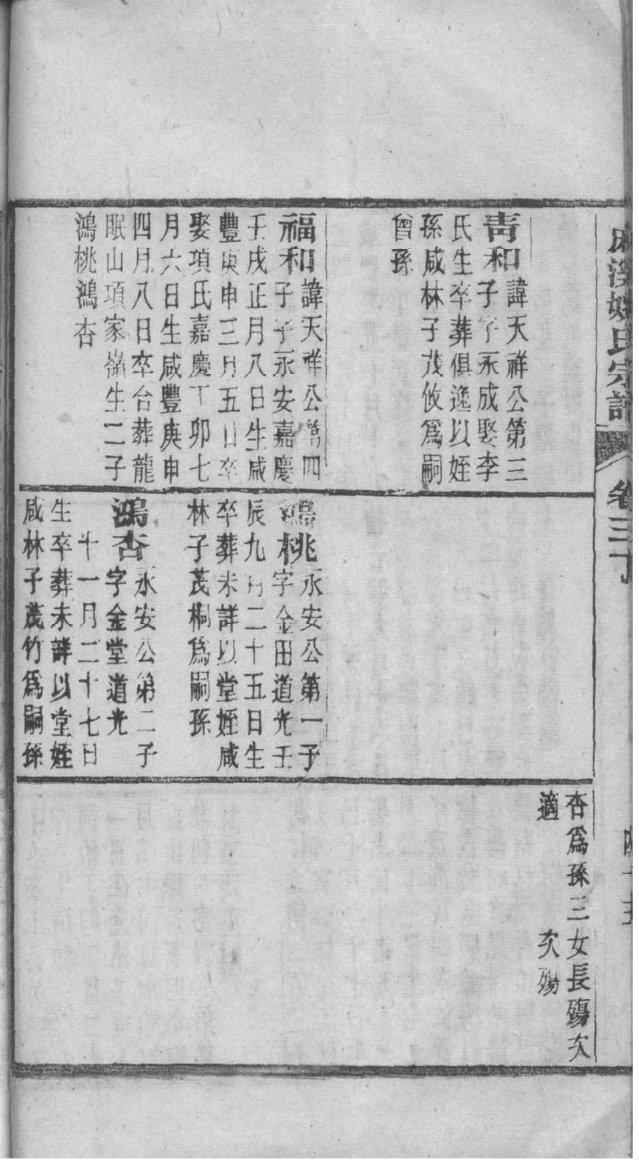 麻溪姚氏宗譜
卷三下
四十五
青和諱天祥公第三
子字永成娶李
氏生卒葬俱逸以姪
孫咸林子茂攸為嗣
曾孫
福和諱天祥公第四
子字永安嘉慶
壬戌正月八日生咸
豐庚申三月五日卒
娶項氏嘉慶丁卯七
月六日生咸豐庚申
四月八日卒合葬龍
眠山項家嶺生二子
鴻桃鴻杏
鴻桃永安公第一子
字金田道光壬
辰九月二十五日生
卒葬未詳以堂姪咸
林子茂桐為嗣孫
鴻杏永安公第二子
字金堂道光
十一月二十七日
生卒葬未詳以堂姪
咸林子茂竹為嗣孫
杏為孫三女長殤次
適 次殤